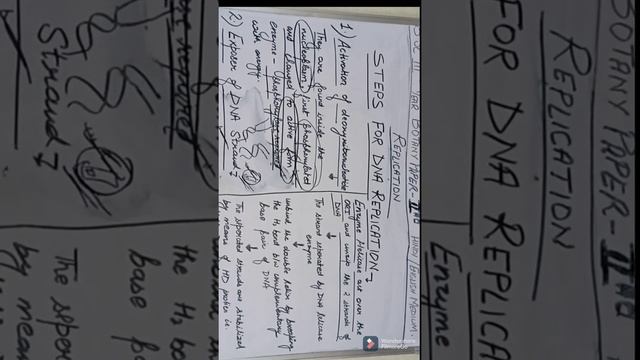 YEAR BOTANY PAPER - II HINDI / ENGLISH MEDIUM.
REPLICATION
STEPS FOR DNA REPLICATION
1) Activation of deoxyribonucleotide
They are found inside the
nucleoplasm, first phosphorylated
and changed to active form
enzyme -
with energy
2) Exposer of DNA Strand
Enzyme Helicase act over the
ORI and unzip the 2 strands of
DNA
The strand separated by DNA helicase
enzyme
unwind the double helix by breaking
the H2 bond b/w complementary
base pair of DNA
The separated strands are stabilized
by means of HD protein i.e.
BOTANY PAPER - II
REPLICATION
FOR DNA REPLICA
Enzyme
Strand
the H2 bo
base
The sepera
by mean
Wondershare
Filmora